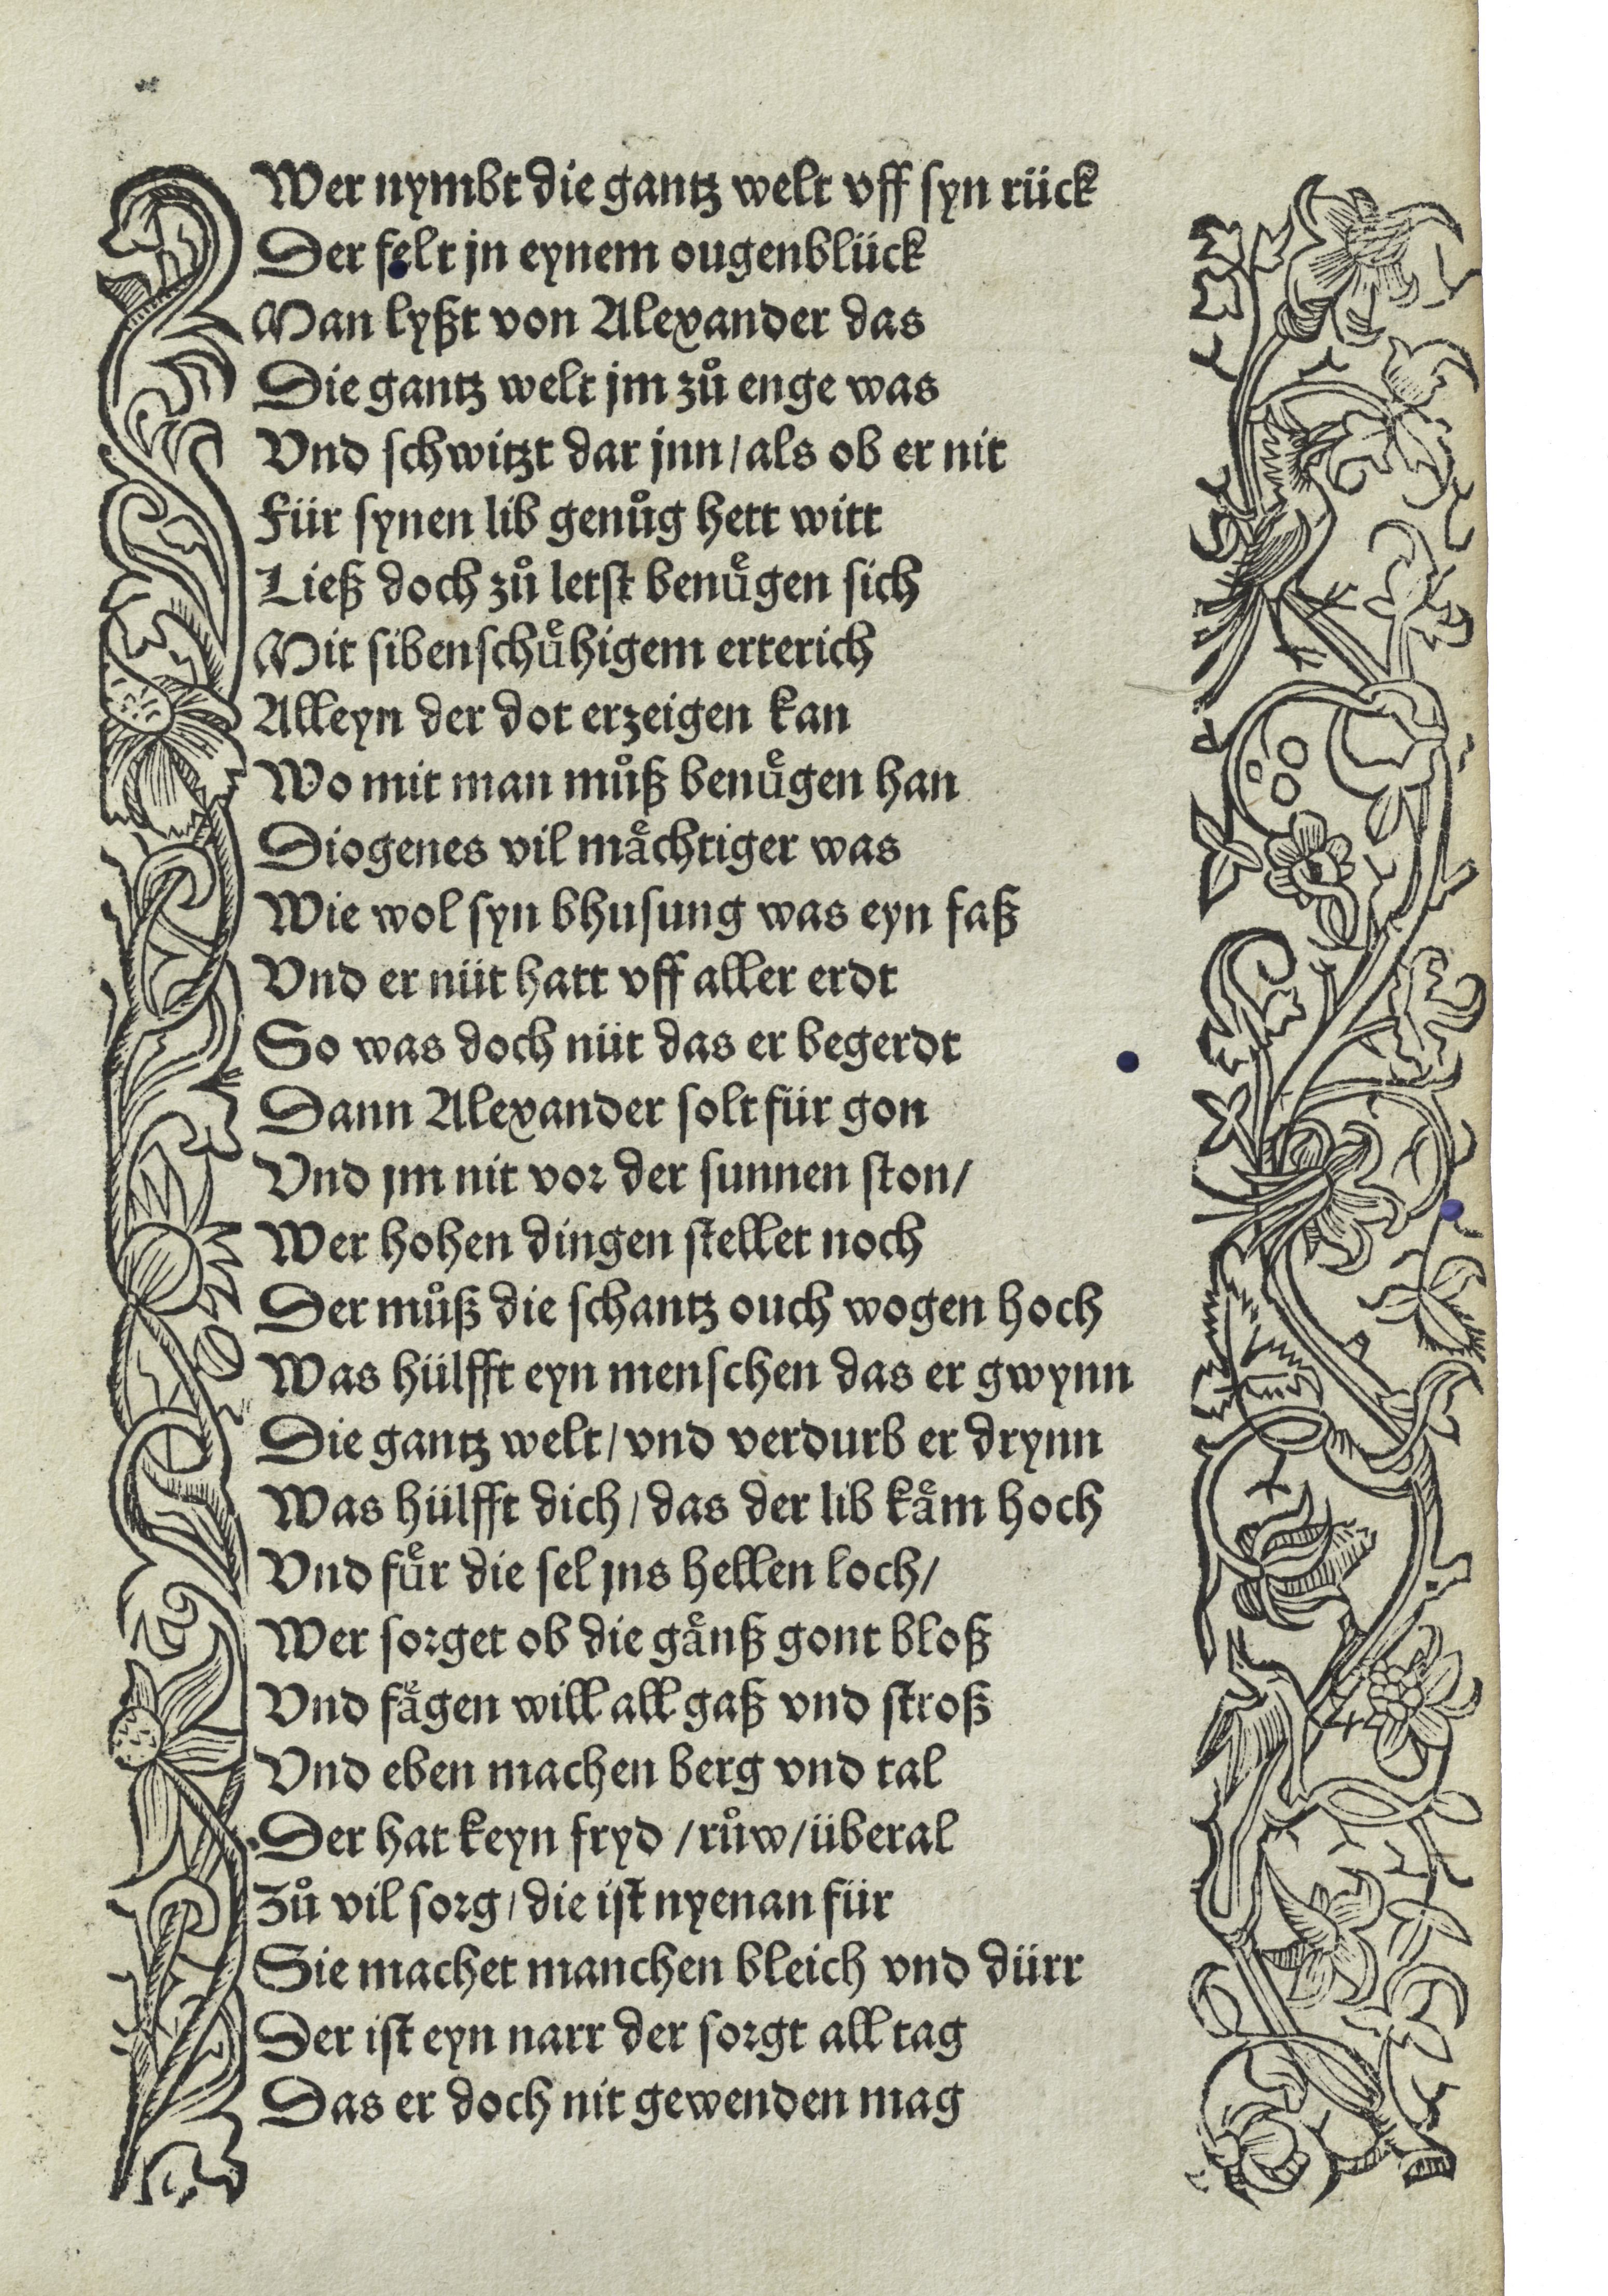 Wer nymbt die gantz welt vff syn rück
Der felt jn eynem ougenblück
Man lyßt von Alexander das
Die gantz welt jm zuͦ enge was
Vnd schwitzt dar jnn / als ob er nit
Für synen lib genuͦg hett witt
Ließ doch zuͦ letst benuͤgen sich
Mit sibenschuͤhigem erterich
Alleyn der dot erzeigen kan
Wo mit man muͦß benuͤgen han
Diogenes vil maͤchtiger was
Wie wol syn bhusung was eyn faß
Vnd er nüt hatt vff aller erdt
So was doch nüt das er begerdt
Dann Alexander solt für gon
Vnd jm nit vor der sunnen ston /
Wer hohen dingen stellet noch
Der muͦß die schantz ouch wogen hoch
Was hülfft eyn menschen das er gwynn
Die gantz welt / vnd verdurb er drynn
Was hülfft dich / das der lib kaͤm hoch
Vnd fuͤr die sel jns hellen loch /
Wer sorget ob die gaͤnß gont bloß
Vnd faͤgen will all gaß vnd stroß
Vnd eben machen berg vnd tal
Der hat keyn fryd / ruͦw / überal
Zuͦ vil sorg / die ist nyenan für
Sie machet manchen bleich vnd dürr
Der ist eyn narr der sorgt all tag
Das er doch nit gewenden mag